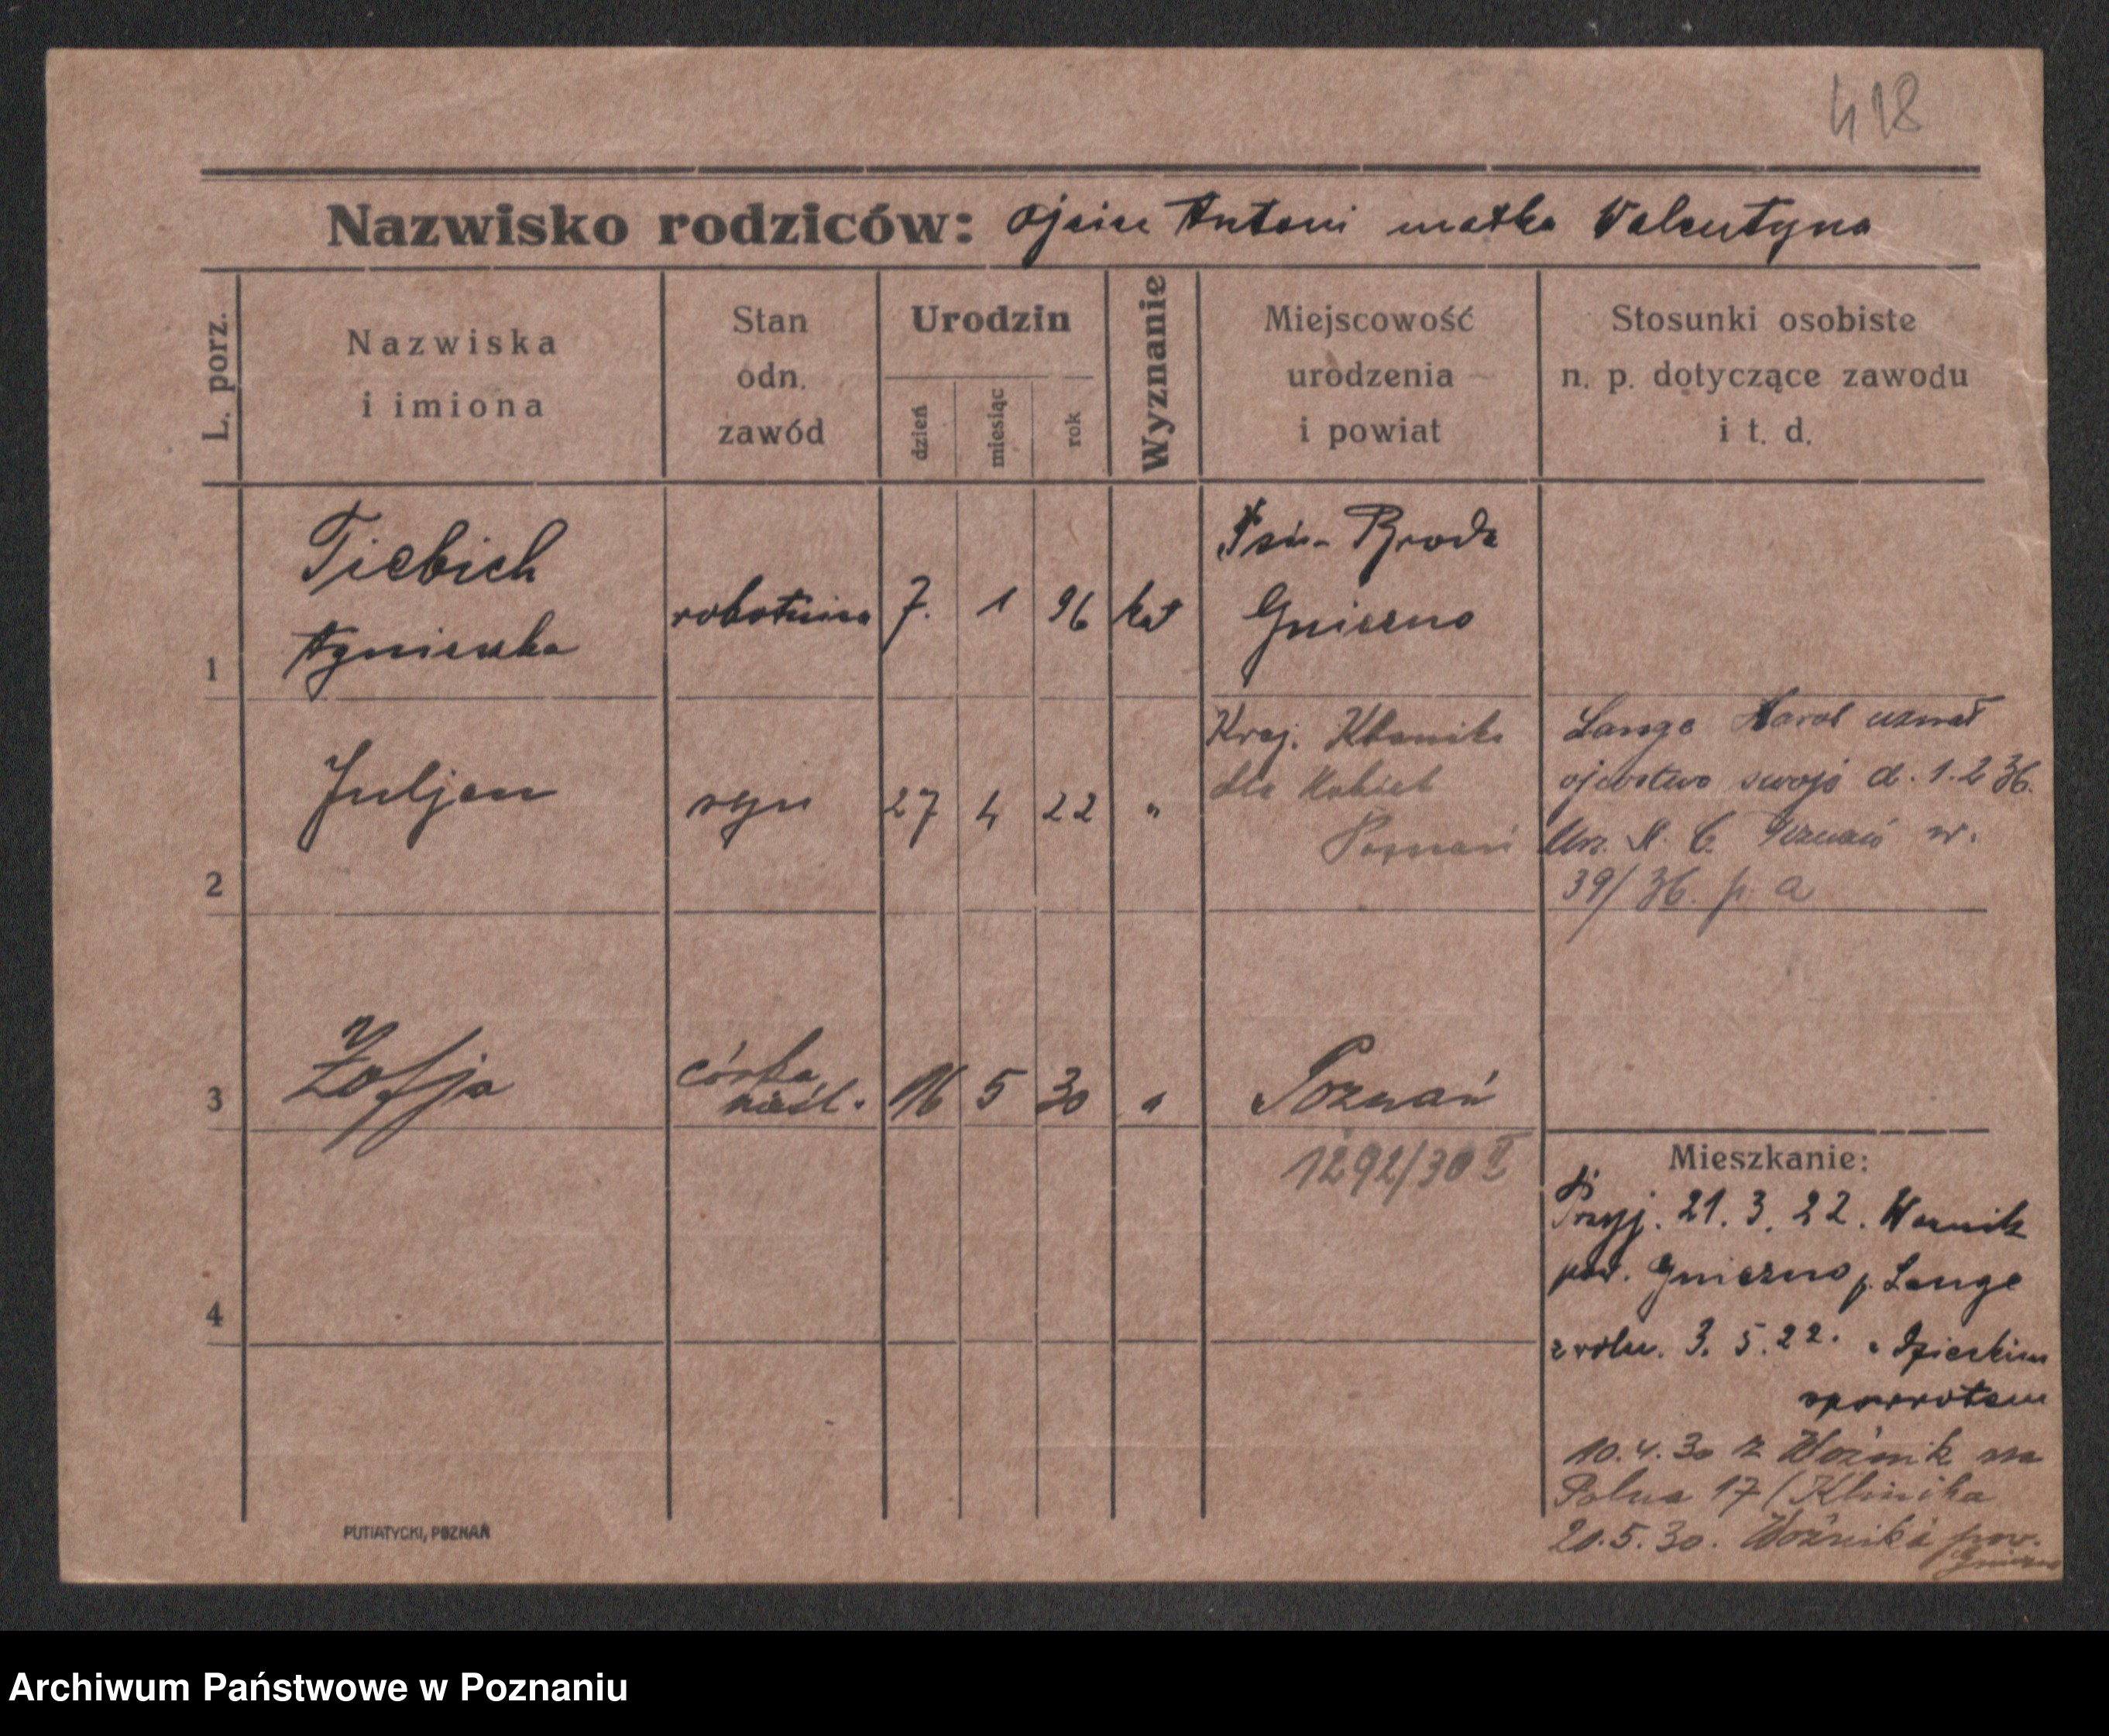 418
Nazwisko rodziców: ojciec Antoni matka Walentyna
L. porz.
Nazwiska
i imiona
Stan
odn.
zawód
Urodzin
dzień
miesiąc
rok
Wyznanie
Miejscowość
urodzenia
i powiat
Stosunki osobiste
n. p. dotyczące zawodu
i t. d.
1
Tiebich
Agnieszka
robotnica
7.
1
96
kat
Broda
Gniezno
2
Juljan
syn
27
4
22
"
Kraj. Klinika
dla Kobiet
Poznań
Lange Karol uznał
ojcostwo swoje d. 1.2 36.
Poznań nr.
39/36. p. a
3
Zofja
córka
nieśl.
16
5
30
"
Poznań
1292/30 I
4
Mieszkanie:
Przyj. 21. 3. 22. Woznik
pow. Gniezno p. Lange
3. 5. 22. Dzieckiem
spowrotem
10. 4. 30 z Woźnik na
Polna 17 (Klinika
20. 5. 30. Woźniki pow.
Gniezno
PUTIATYCKI, POZNAŃ
Archiwum Państwowe w Poznaniu